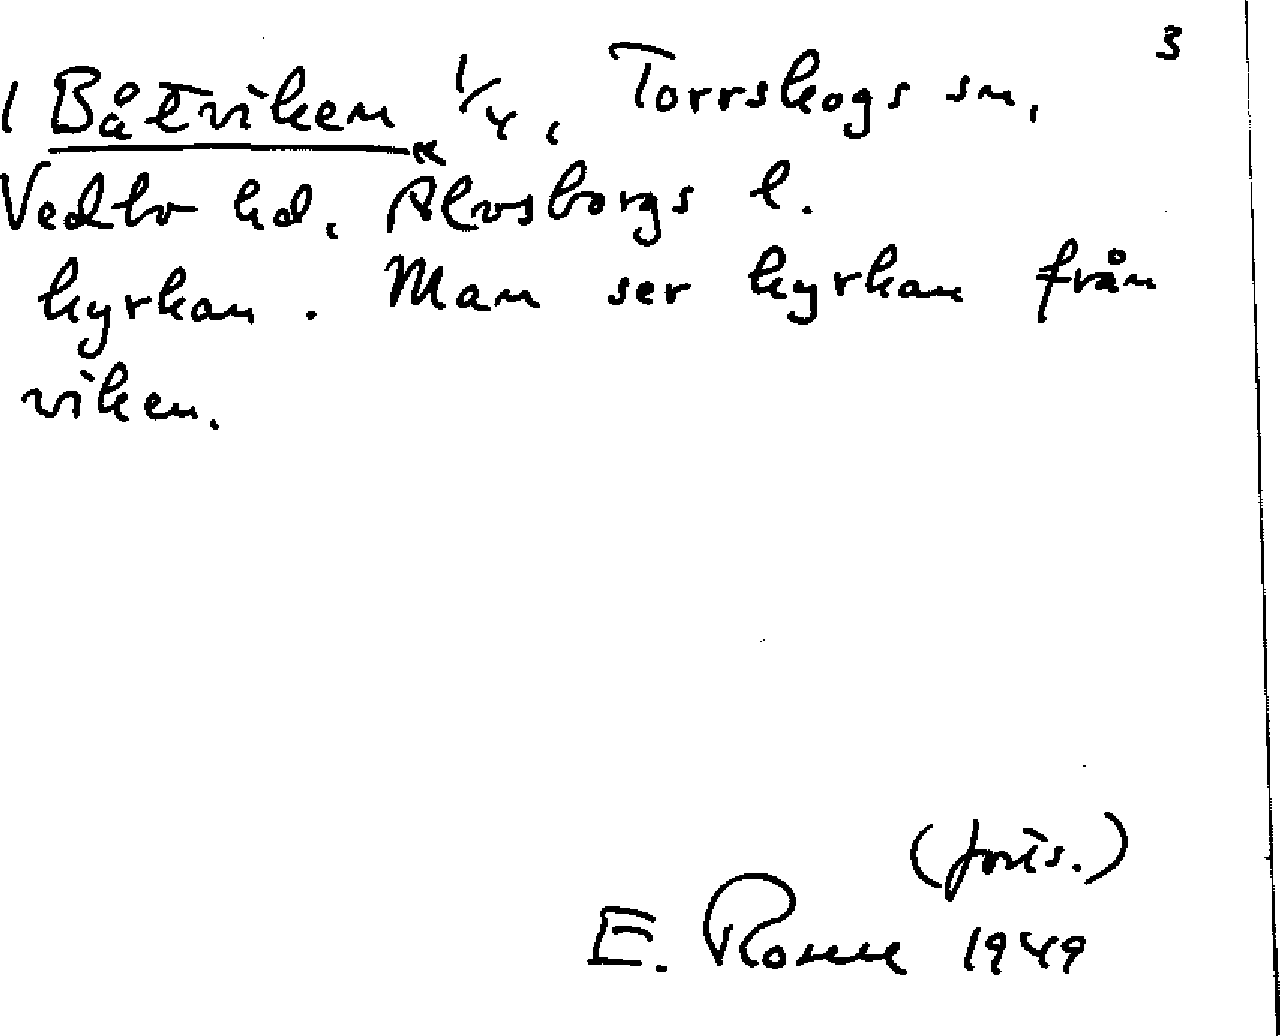 3
1 Båtviken 1/4, Torrskogs sn,
Vedbo hd, Älvsborgs l.
kyrkan. Man ser kyrkan från
viken.
(forts.)
E. Rosell 1949